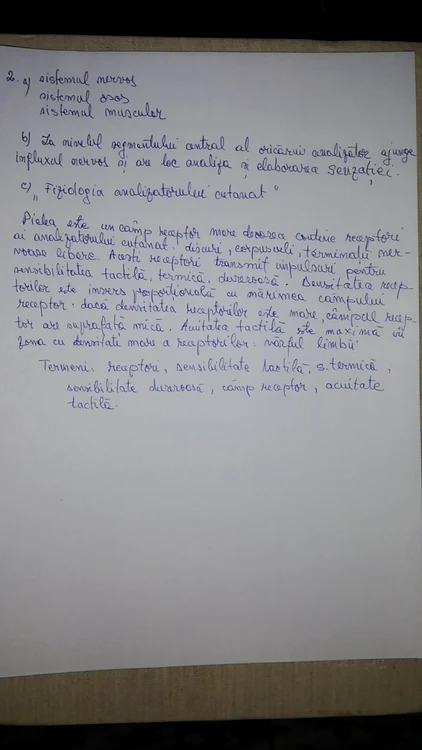 2. a) sistemul nervos
sistemul osos
sistemul muscular
b) La nivelul segmentului central al oricărui analizator ajunge
influxul nervos și are loc analiza și elaborarea senzației.
c) „Fiziologia analizatorului cutanat"
Pielea este un câmp receptor mare deoarece conține receptori
ai analizatorului cutanat: discuri, corpusculi, terminații ner-
voase libere. Acești receptori transmit impulsuri pentru
sensibilitatea tactilă, termică, dureroasă. Densitatea recep-
torilor este invers proporțională cu mărimea câmpului
receptor: dacă densitatea receptorilor este mare, câmpul recep-
tor are suprafață mică. Acuitatea tactilă este maximă în
zona cu densitate mare a receptorilor: vârful limbii
Termeni: receptori, sensibilitate tactilă, s. termică,
sensibilitate dureroasă, câmp receptor, acuitate
tactilă.